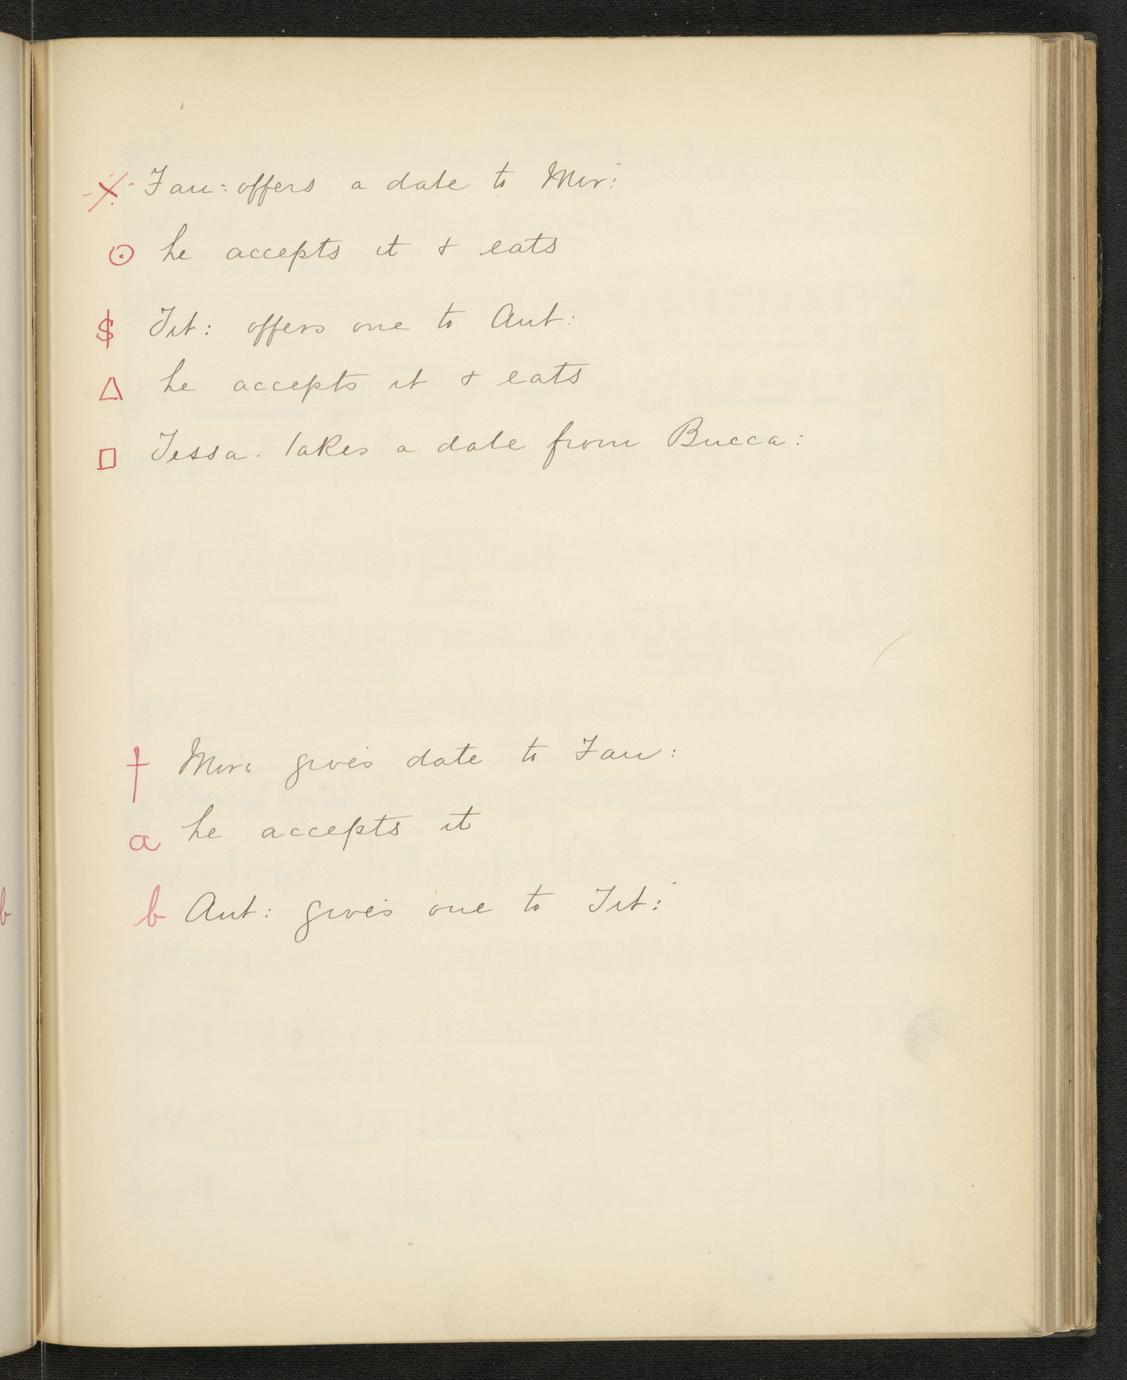 ※ Fau: offers a date to Mir:
⊙ he accepts it & eats
$ Tit: offers one to Ant:
△ he accepts it & eats
□ Tessa. takes a date from Bucca:
† Mir: gives date to Fau:
a he accepts it
b Ant: gives one to Tit:
b